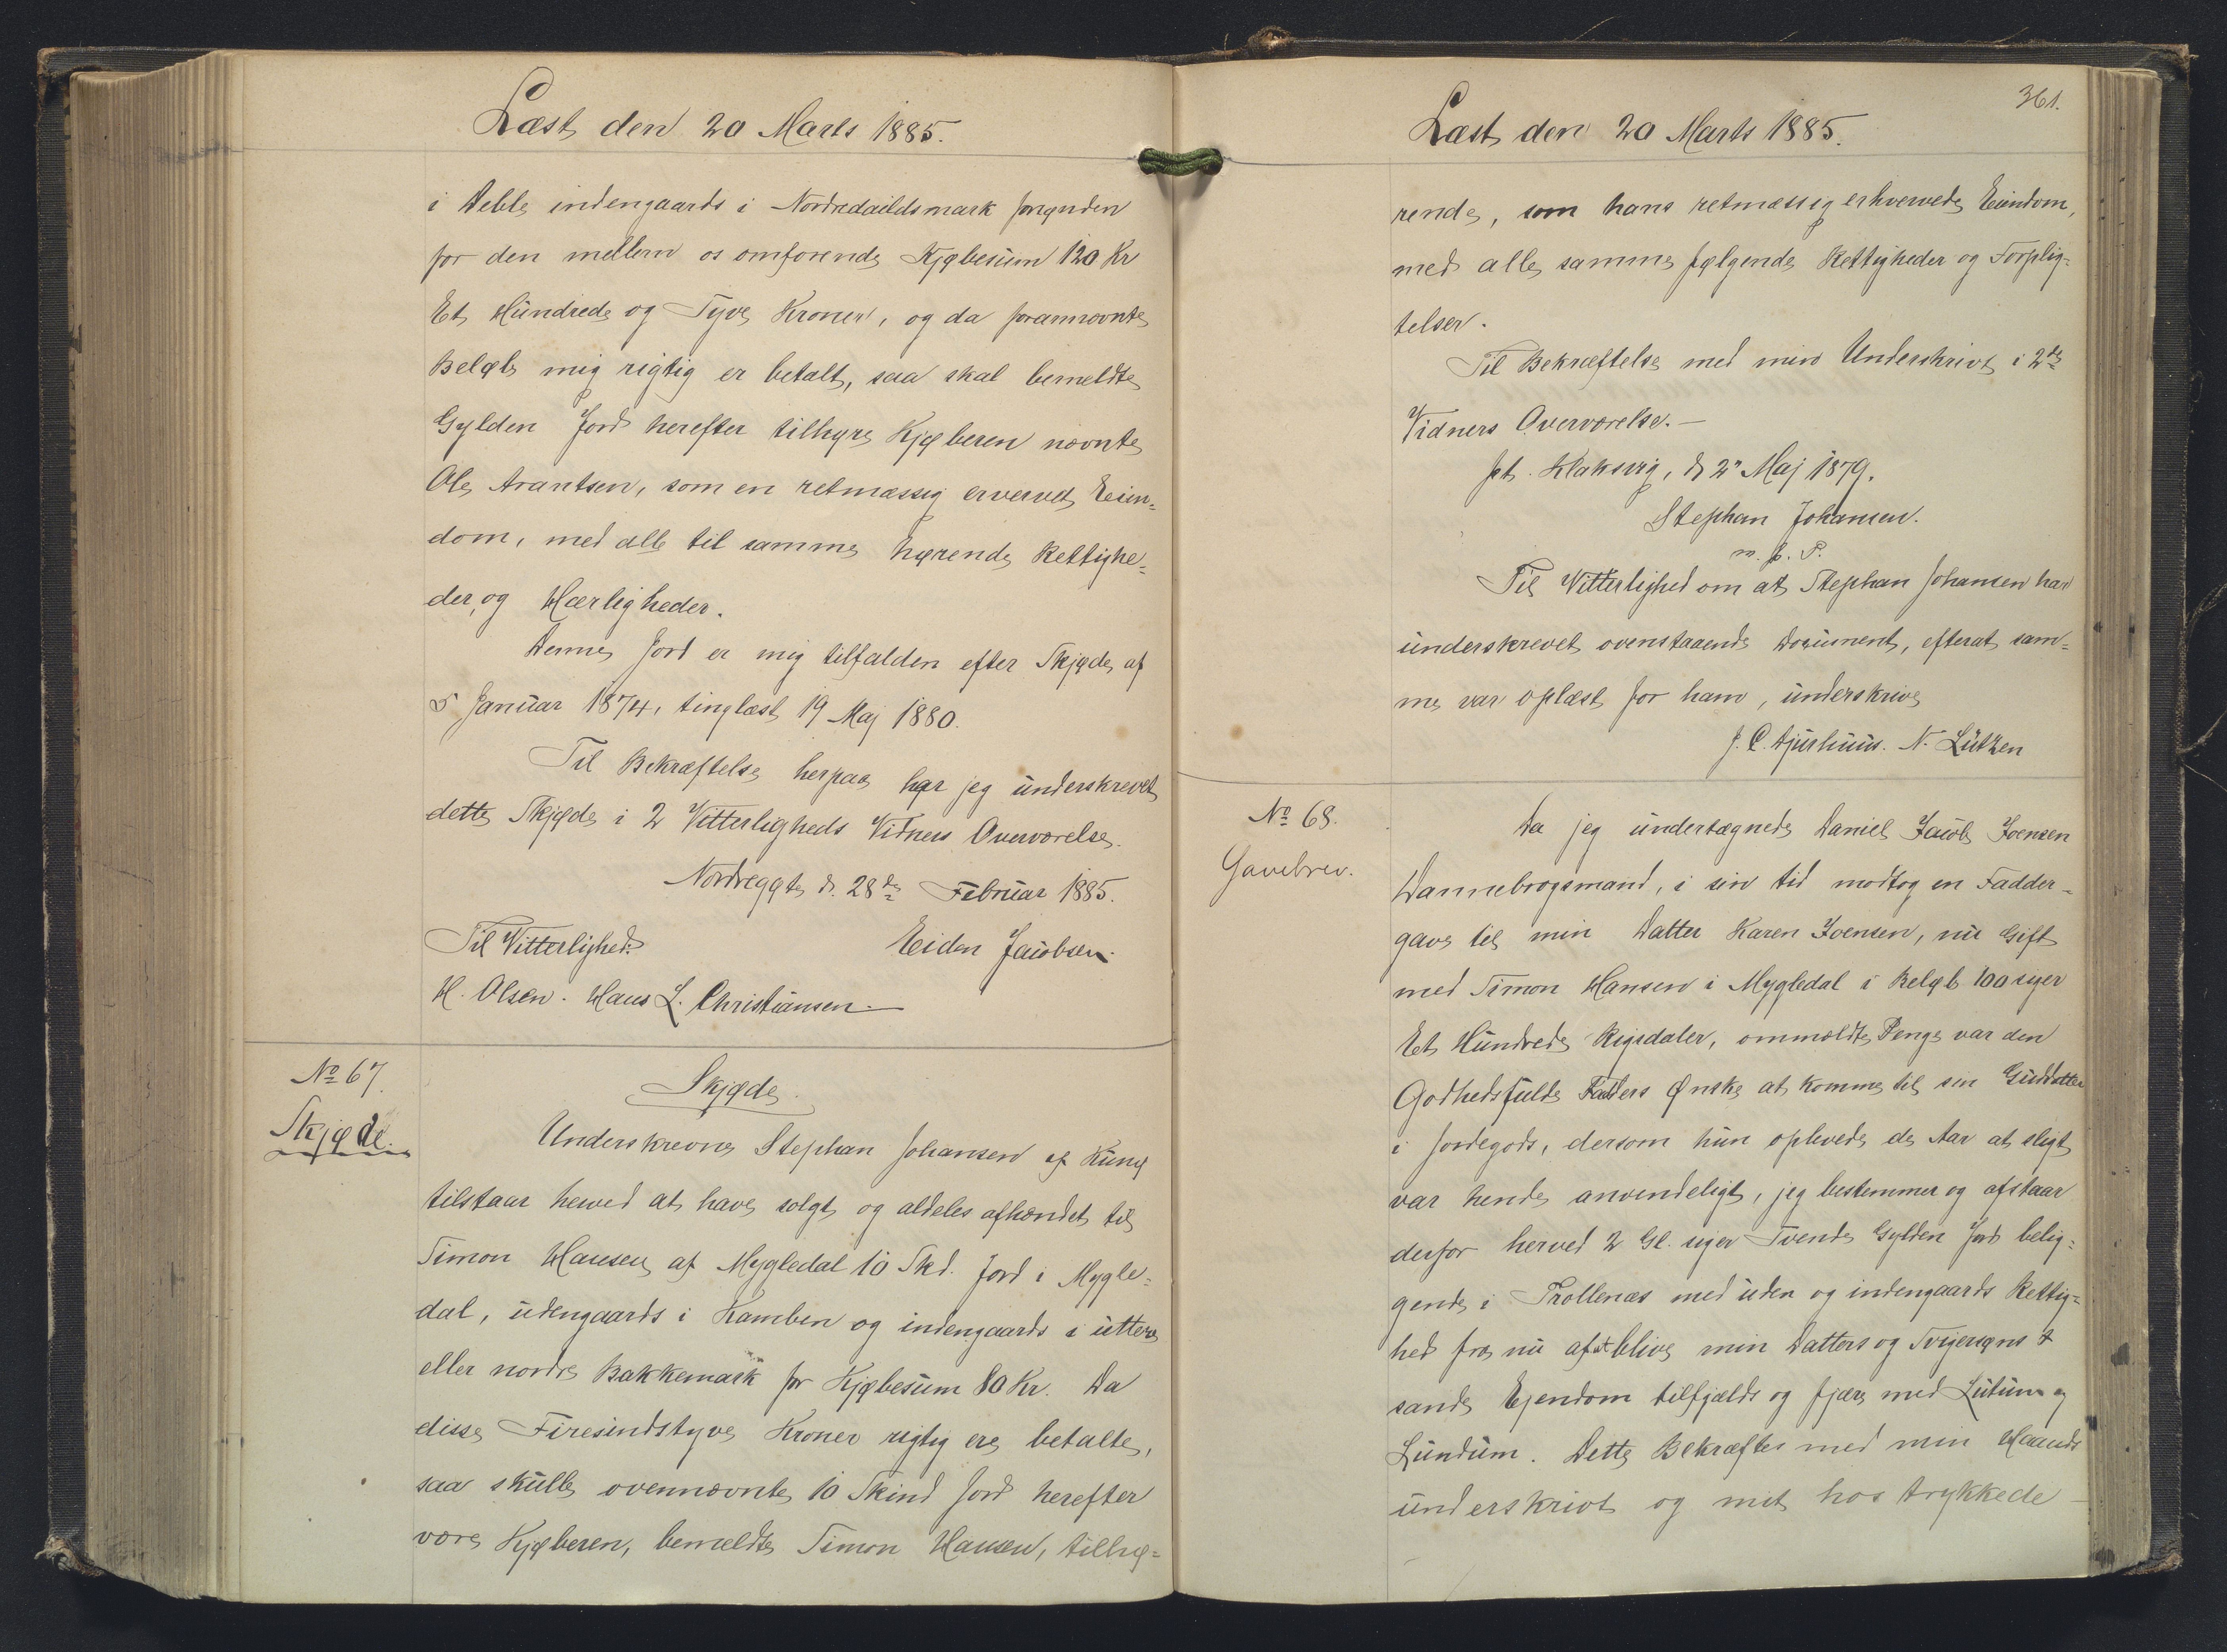 Læst den 20 Marts 1885.
i Deble indengaards i Nordredaildsmark
for den mellem os omforende Kjøbesum 120 Kr
Et Hundrede og Tyve Kroner, og da forannævnte
Beløb mig rigtig er betalt, saa skal bemeldte
Gylden Jord herefter tilhøre Kjøberen nævnte
Ole Arantsen, som en retmæssig ervervet Eien-
dom, med alle til samme hørende Rettighe-
der, og Herligheder.
Denne Jord er mig tilfalden efter Skjøde af
5 Januar 1874, tinglæst 19 Maj 1880.
Til Bekræftelse herpaa har jeg underskrevet
dette Skjøde i 2 Vitterligheds Vidners Overværelse.
Nordregøte d. 28de Februar 1885.
Til Vitterlighed: Eiden Jacobsen.
H. Olsen. Hans L. Christiansen
No 67.
Skjøde.
Skjøde.
Underskrevne Stephan Johansen af Kunø
tilstaar herved at have solgt og aldeles afhændet til
Simon Hansen af Mygledal 10 Skd. Jord i Mygle-
dal, udengaards i Kamben og indengaards i uttere
eller nordre Bakkemark for Kjøbesum 80 Kr. Da
disse Firesindstyve Kroner rigtig ere betalte,
saa skulle ovennævnte 10 Skind Jord herefter
være Kjøberen, bemeldte Simon Hansen, tilhø-
361.
Læst den 20 Marts 1885.
rende, som hans retmæssig erhvervede Eiendom,
med alle samme følgende Rettigheder og Forplig-
telser.
Til Bekræftelse med min Underskrivt i 2de
Vidners Overværelse. -
pt. Klaksvig, d 2n Maj 1879.
Stephan Johansen.
m. f. P.
Til Vitterlighed om at Stephan Johansen har
underskrevet ovenstaaende Document, efterat sam-
me var oplæst for ham, underskrive
J. C. Djurhuus. N. Lützen
No 68.
Gavebrev.
Da jeg undertægnede Daniel Jacob Joensen
Dannebrogsmand, i sin tid modtog en Fadder-
gave til min Datter Karen Joensen, nu Gift
med Simon Hansen i Mygledal i Beløb 100 siger
Et Hundrede Rigsdaler, ommældte Penge var den
Godhedsfulde Fadders Ønske at komme til sin Guddatter
i Jordegods, dersom hun oplevede de Aar at sligt
var hende anvendeligt, jeg bestemmer og afstaar
derfor herved 2 Gl. siger Tvende Gylden Jord belig-
gende i Trollenæs med uden og indengaards Rettig-
hed fra nu af at blive min Datters og Svigersøns
sande Ejendom tilfjælds og fjære med Lutum og
Lundum. Dette Bekræftes med min Haands
underskrivt og mit hos trykkede